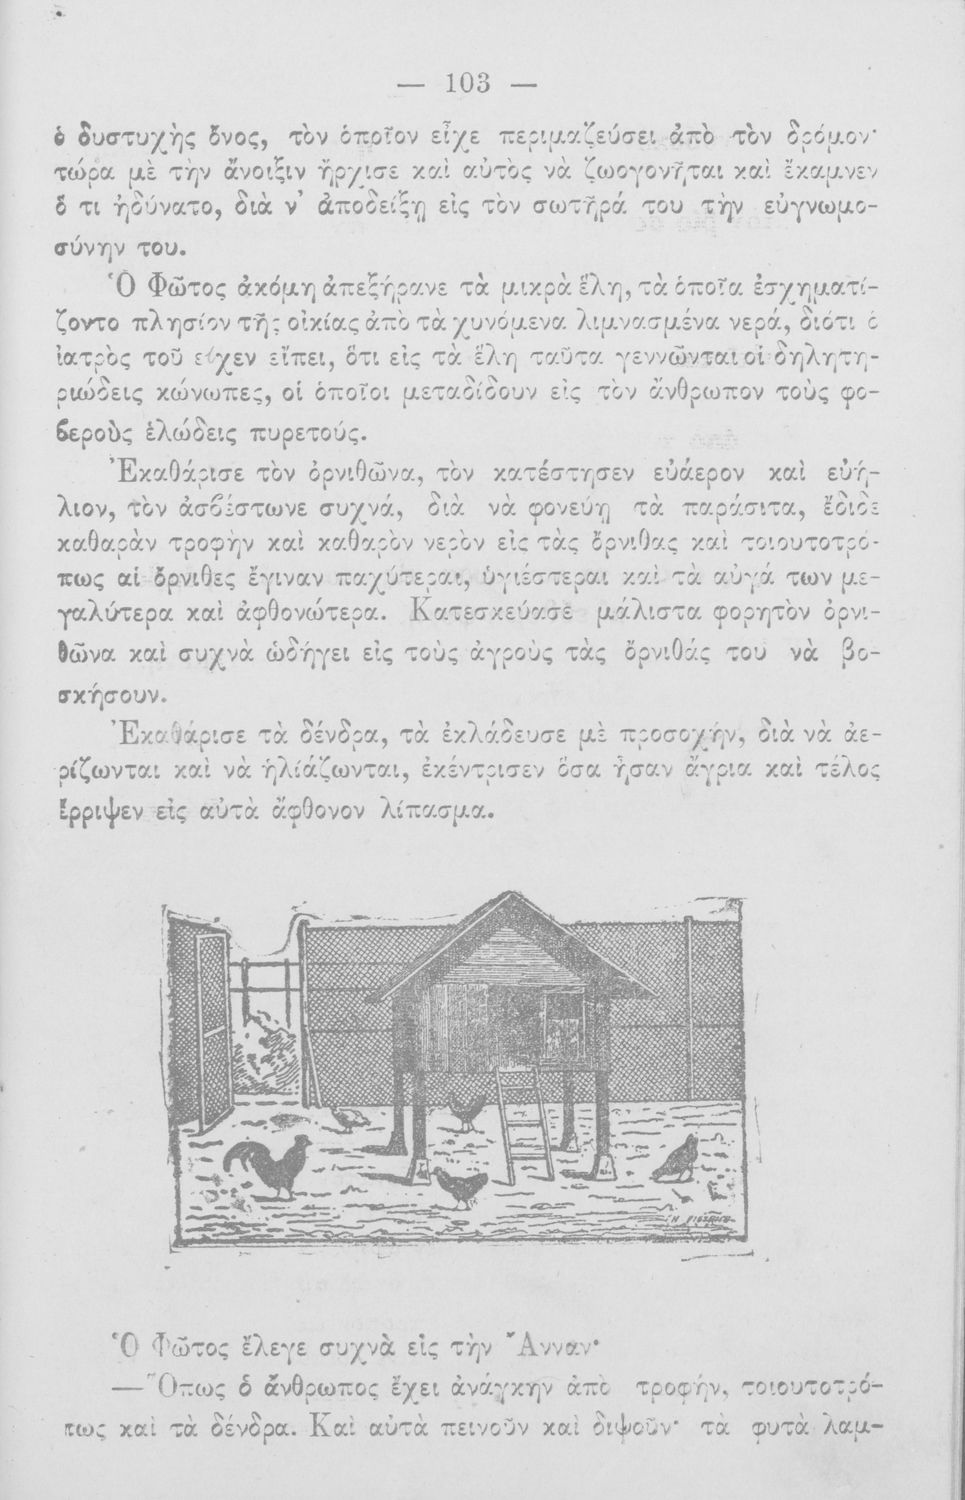 — 103 —
ὁ δυστυχὴς ὄνος, τὸν ὁποῖον εἶχε περιμαζεύσει ἀπὸ τὸν δρόμον·
τώρα μὲ τὴν ἄνοιξιν ἤρχισε καὶ αὐτὸς νὰ ζωογονῆται καὶ ἔκαμνεν
ὅ τι ἠδύνατο, διὰ ν᾿ ἀποδείξῃ εἰς τὸν σωτῆρά του τὴν εὐγνωμο-
σύνην του.
Ὁ Φῶτος ἀκόμη ἀπεξήρανε τὰ μικρὰ ἕλη, τὰ ὁποῖα ἐσχηματί-
ζοντο πλησίον τῆς οἰκίας ἀπὸ τὰ χυνόμενα λιμνασμένα νερά, διότι ὁ
ἰατρὸς τοῦ εἶχεν εἴπει, ὅτι εἰς τὰ ἕλη ταῦτα γεννῶνται οἱ δηλητη-
ριώδεις κώνωπες, οἱ ὁποῖοι μεταδίδουν εἰς τὸν ἄνθρωπον τοὺς φο-
βεροὺς ἑλώδεις πυρετούς.
Ἐκαθάρισε τὸν ὀρνιθῶνα, τὸν κατέστησεν εὐάερον καὶ εὐή-
λιον, τὸν ἀσβέστωνε συχνά, διὰ νὰ φονεύῃ τὰ παράσιτα, ἔδιδε
καθαρὰν τροφὴν καὶ καθαρὸν νερὸν εἰς τὰς ὄρνιθας καὶ τοιουτοτρό-
πως αἱ ὄρνιθες ἔγιναν παχύτεραι, ὑγιέστεραι καὶ τὰ αὐγά των με-
γαλύτερα καὶ ἀφθονώτερα. Κατεσκεύασε μάλιστα φορητὸν ὀρνι-
θῶνα καὶ συχνὰ ὡδήγει εἰς τοὺς ἀγροὺς τὰς ὄρνιθάς του νὰ βο-
σκήσουν.
Ἐκαθάρισε τὰ δένδρα, τὰ ἐκλάδευσε μὲ προσοχήν, διὰ νὰ ἀε-
ρίζωνται καὶ νὰ ἡλιάζωνται, ἐκέντρισεν ὅσα ἦσαν ἄγρια καὶ τέλος
ἔρριψεν εἰς αὐτὰ ἄφθονον λίπασμα.
Ὁ Φῶτος ἔλεγε συχνὰ εἰς τὴν Ἄνναν·
—Ὅπως ὁ ἄνθρωπος ἔχει ἀνάγκην ἀπὸ τροφήν, τοιουτοτρό-
πως καὶ τὰ δένδρα. Καὶ αὐτὰ πεινοῦν καὶ διψοῦν· τὰ φυτὰ λαμ-